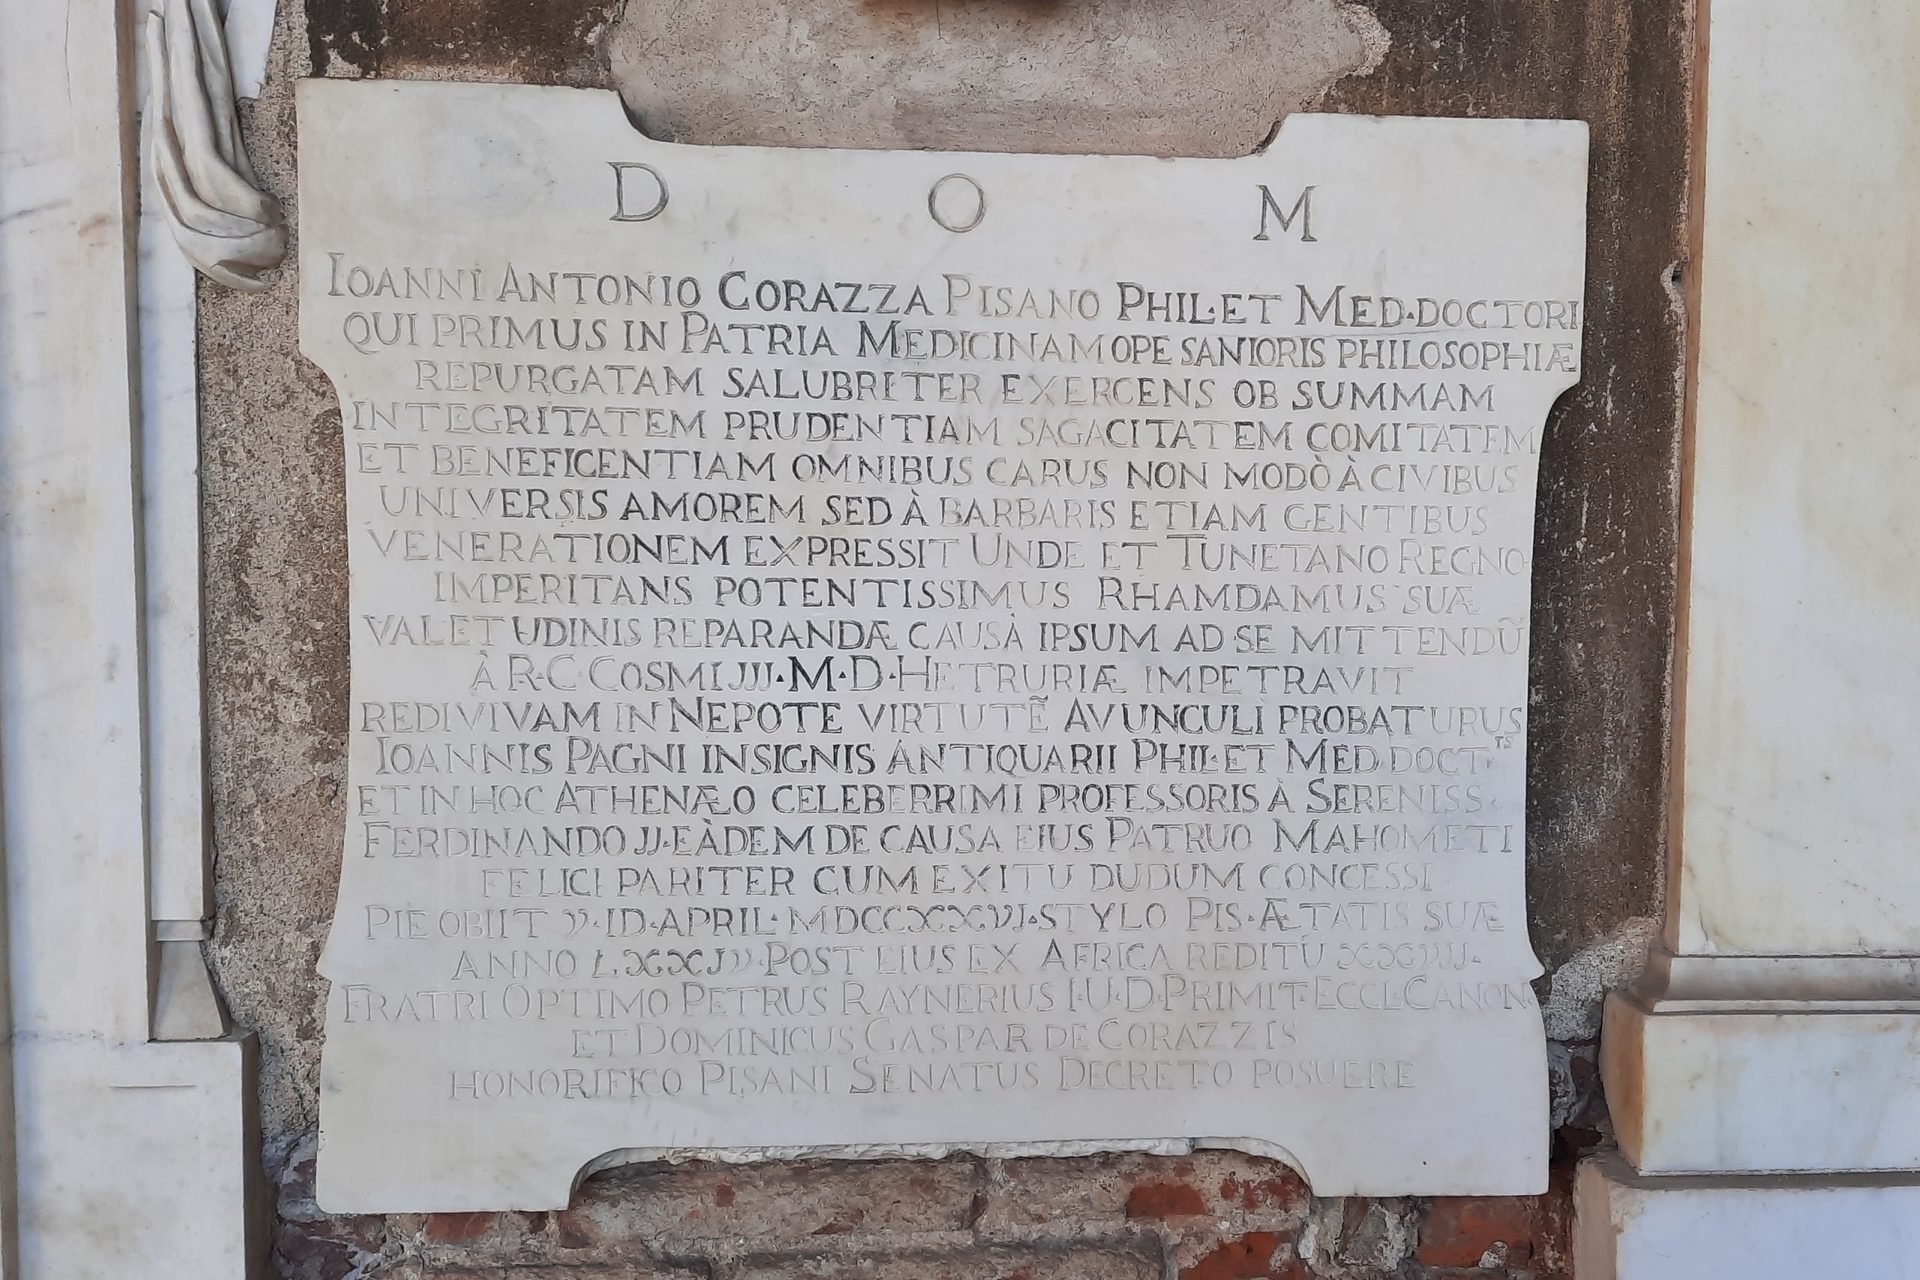 D O M
IOANNI ANTONIO CORAZZA PISANO PHIL·ET MED·DOCTORI
QUI PRIMUS IN PATRIA MEDICINAM OPE SANIORIS PHILOSOPHIÆ
REPURGATAM SALUBRITER EXERCENS OB SUMMAM
INTEGRITATEM PRUDENTIAM SAGACITATEM COMITATEM
ET BENEFICENTIAM OMNIBUS CARUS NON MODÒ À CIVIBUS
UNIVERSIS AMOREM SED À BARBARIS ETIAM GENTIBUS
VENERATIONEM EXPRESSIT UNDE ET TUNETANO REGNO
IMPERITANS POTENTISSIMUS RHAMDAMUS SUÆ
VALETUDINIS REPARANDÆ CAUSÀ IPSUM AD SE MITTENDŨ
À R·C·COSMI JJJ·M·D·HETRURIÆ IMPETRAVIT
REDIVIVAM IN NEPOTE VIRTUTẼ AVUNCULI PROBATURUS
IOANNIS PAGNI INSIGNIS ANTIQUARII PHIL·ET MED·DOCTIS
ET IN HOC ATHENÆO CELEBERRIMI PROFESSORIS À SERENISS·
FERDINANDO JJ·EÀDEM DE CAUSA EIUS PATRUO MAHOMETI
FELICI PARITER CUM EXITU DUDUM CONCESSI
PIE OBIIT V·ID·APRIL·MDCCXXVJ·STYLO PIS·ÆTATIS SUÆ
ANNO LXXJV·POST EIUS EX AFRICA REDITU XXVJJ·
FRATRI OPTIMO PETRUS RAYNERIUS I·U·D·PRIMIT·ECCL·CANON·
ET DOMINICUS GASPAR DE CORAZZIS
HONORIFICO PISANI SENATUS DECRETO POSUERE